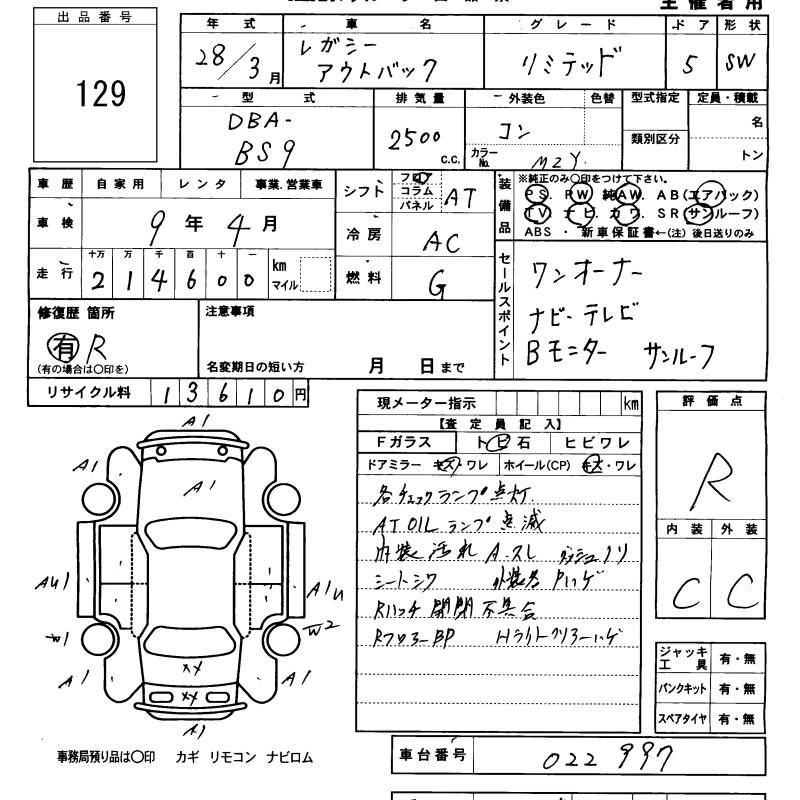 主催者用
出品番号
129
年式 車名 グレード ドア 形状
28/3月 レガシー アウトバック リミテッド 5 SW
型式 排気量 外装色 色替 型式指定 定員・積載
DBA-
BS9
2500 C.C.
コン
カラーNo. M2Y.
類別区分
名
トン
車歴 自家用 レンタ 事業.営業車
車検 9年4月
走行 十万 万 千 百 十 一
214600 km マイル
シフト フロア コラム パネル AT
冷房 AC
燃料 G
装備品
※純正のみ○印をつけて下さい。
PS. PW 純AW. AB(エアバック)
TV ナビ. カワ. SR(サンルーフ)
ABS ・ 新車保証書←(注) 後日送りのみ
セールスポイント
ワンオーナー
ナビ・テレビ
Bモニター サンルーフ
修復歴 箇所
有 R
(有の場合は○印を)
注意事項
名変期日の短い方 月 日まで
リサイクル料 13610円
現メーター指示 km
【査定員記入】
Fガラス トビ石 ヒビワレ
ドアミラー キズ・ワレ ホイール(CP) キズ・ワレ
各チェックランプ点灯.
AT OIL ランプ点滅
内装汚れ A.スレ ダッシュノリ
シートシワ 外装各Pハゲ
Rハッチ 開閉不具合
Rフロアー BP Hライトクリアーハゲ
評価点
R
内装 外装
C C
ジャッキ 工具 有・無
パンクキット 有・無
スペアタイヤ 有・無
A1
A1 A1
A1
AU1 A1U
W1 W2
A1 A1
XY
XY
A1
事務局預り品は○印 カギ リモコン ナビロム
車台番号 022997